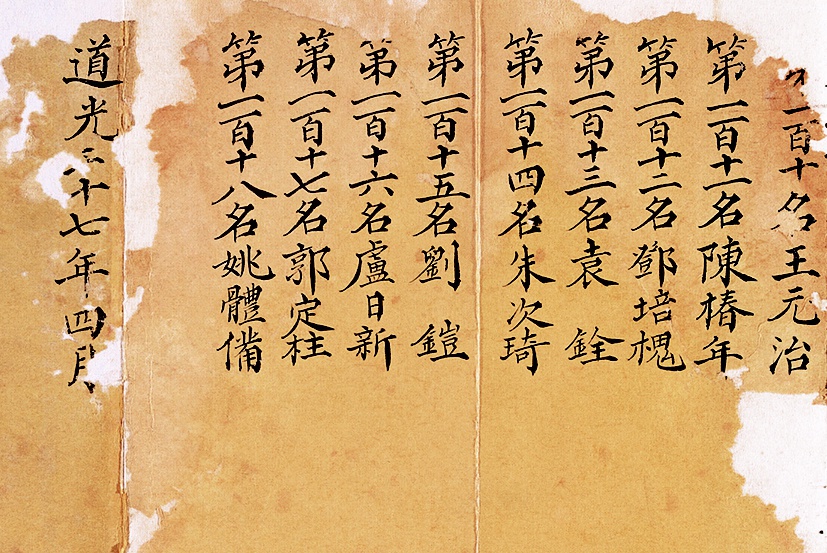 一百十名王元治
第一百十一名陳椿年
第一百十二名鄧培槐
第一百十三名袁銓
第一百十四名朱次琦
第一百十五名劉鎧
第一百十六名盧日新
第一百十七名郭定柱
第一百十八名姚體備
道光二十七年四月